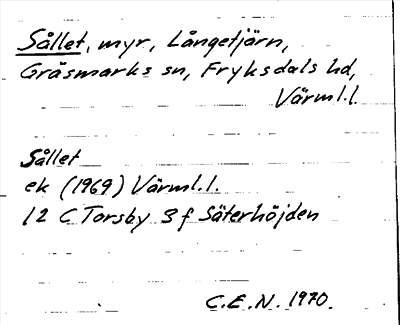 Sållet, myr, Långetjärn,
Gräsmarks sn, Fryksdals hd,
Värml.l.
Sållet
ek (1969) Värml.l.
12 C Torsby 3 f Säterhöjden
C.E.N. 1970.